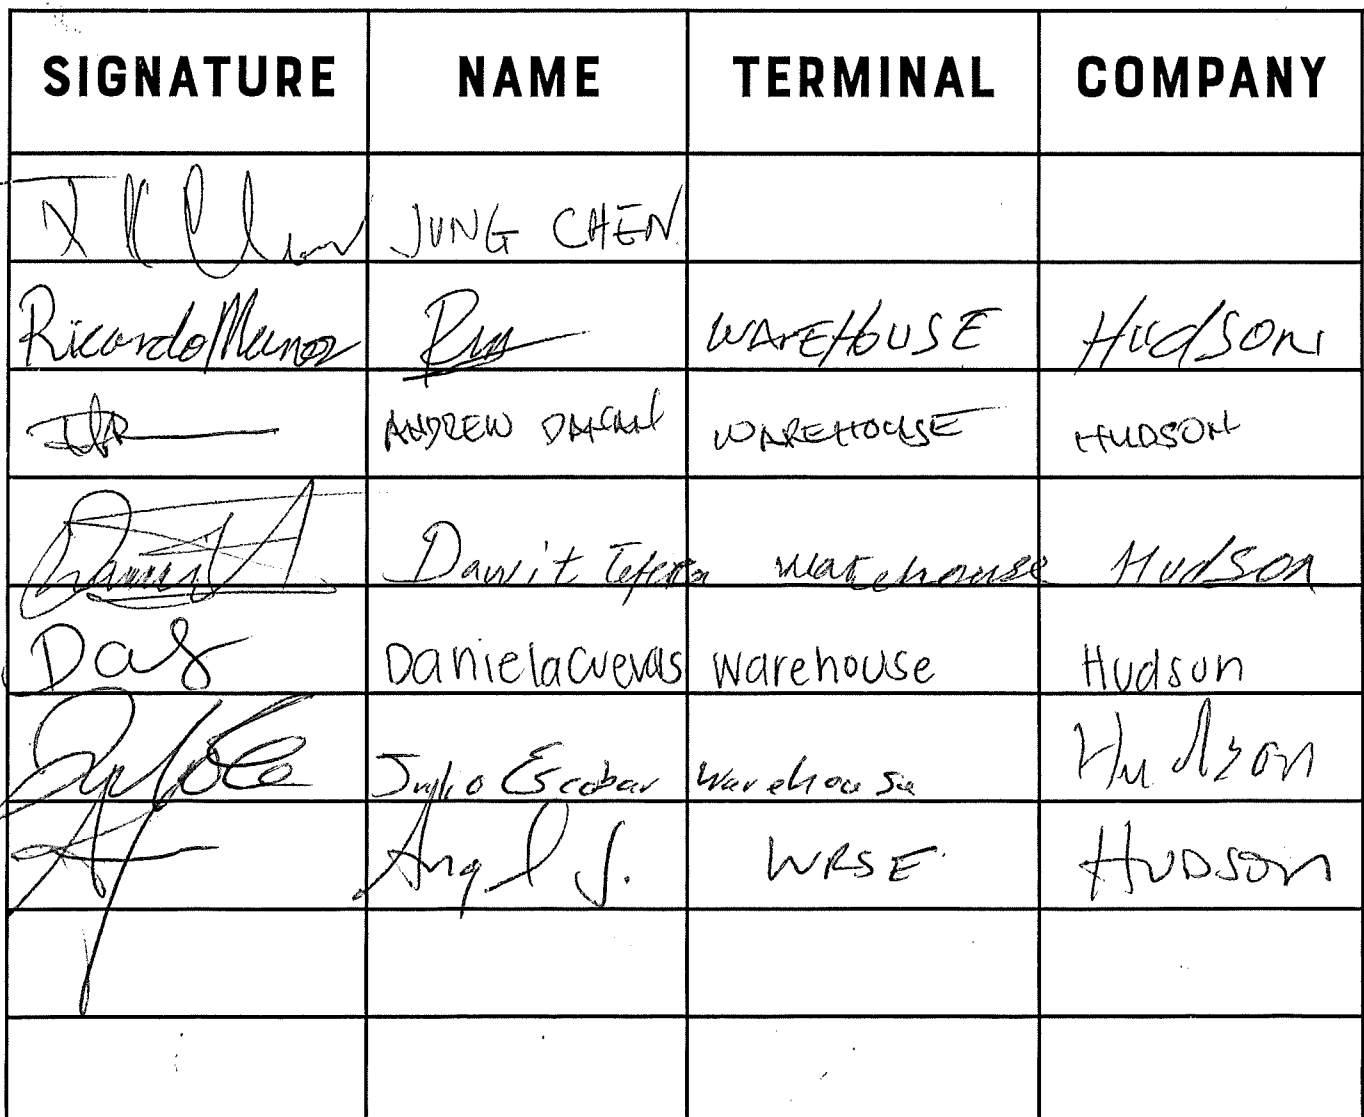 SIGNATURE NAME TERMINAL COMPANY
JUNG CHEN
Ricardo Munoz WAREHOUSE Hudson
ANDREW WAREHOUSE HUDSON
Dawit Tefera warehouse Hudson
Das Daniela Cuevas Warehouse Hudson
Julio Escobar Warehouse Hudson
Angel J. WRSE HUDSON